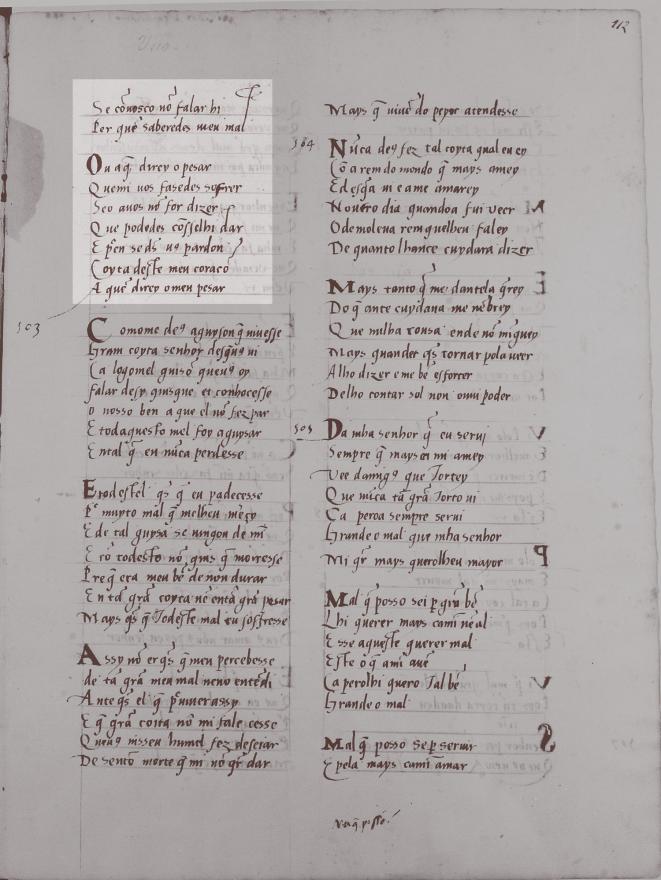 112
Se cōuosco nō falar hi
Per que saberedes meu mal
Ou a q̄ direy o pesar
Quemi uos fasedes sofrer
Seo auos nō for dizer
Que podedes cōsselhi dar
E pēn seds us pardon
Coyta deste meu coraco
A que direy o meu pesar
503
Comome deꝰ aguyson q̄ niuesse
Gram coyta senhor desq̄uꝰ ui
Ca logomel guisō queuꝰ oy
falar desy quisque et conhocesse
o nosso ben a que el nō fez par
E todaquesto mel foy aguysar
Ental q̄ eu nūca perdesse
E todestel qs q̄ eu padecesse
Pr muyto mal q̄ melheu mēço
E de tal guysa se uingou de mī
E cō todesto nō quis q̄ morresse
Pre q̄ era meu bē de non durar
En tā grā coyta nē entā grā pesar
Mays qs q̄ todeste mal eu soffresse
Assy nō er qs q̄ meu percebesse
de tā grā meu mal neno entēdi
Ante qs el q̄ pr uiuer assy
E q̄ grā coita nō mi fale cesse
Queuꝰ uisseu humel fez deseiar
De sentō morte q̄ mi nō qr dar
Mays q̄ uiuē do peyor atendesse
504
Nūca deꝰ fez tal coyta qual eu ey
Cō a rem do mondo q̄ mays amey
E desq̄a ui e ame amarey
Noutro dia quandoa fui ueer
O demo leua rem quelheu faley
De quanto lhante cuydara dizer
Mays tanto q̄ me dantela q̄rey
Do q̄ ante cuydaua me nēbrey
Que nulha cousa ende nō mīguey
Mays quander qs tornar pola ueer
A lho dizer e me bē esforcer
Delho contar sol non ouui poder
505
Da mha senhor q̄ eu serui
Sempre q̄ mays ca mi amey
Veedamigꝰ que tortey
Que nūca tā grā torto ui
Ca pero a sempre serui
Grande o mal que mha senhor
Mi qr mays querolheu mayor
Mal q̄ posso sei per grā bē
Lhi querer mays cami nē al
E sse aqueste querer mal
Este o q̄ ami auē
Ca perolhi quero tal bē
Grande o mal
Mal q̄ posso se per seruir
E pela mays cami amar